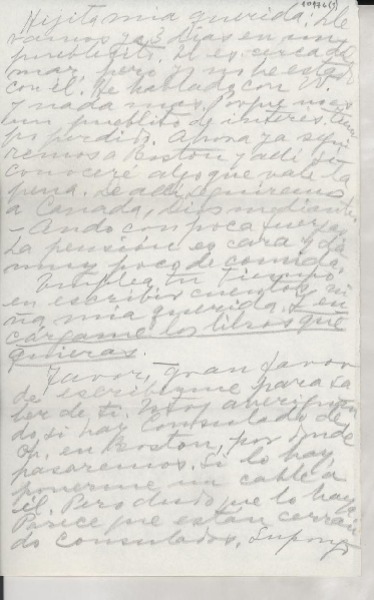 10976(1)
Hijita mia querida: Lle
vamos ya 3 días en un
pueblecito. El es cerca del
mar, pero yo no he estado
con él. He hablado con
y nada mas. Porque no es
un pueblito de interés. Tiem
po perdido. Ahora ya segui
remos a Boston y allí sí
conoceré algo que vale la
pena. De allí seguiremos
a Canadá, Dios mediante.
- Ando con poca fuerza.
La pensión es cara y da
muy poco de comida.
Emplea tu tiempo
en escribir cuentos, ni
ña mia querida. Y en
cárgame los libros que
quieras.
Favor, gran favor
de escribirme para sa
ber de ti. Estoy averiguan
do, si hay Consulado de
Ch. en Boston, por donde
pasaremos. Si lo hay
ponerme un cable a
él. Pero dudo que lo haya.
Parece que están cerran
do consulados. Supongo